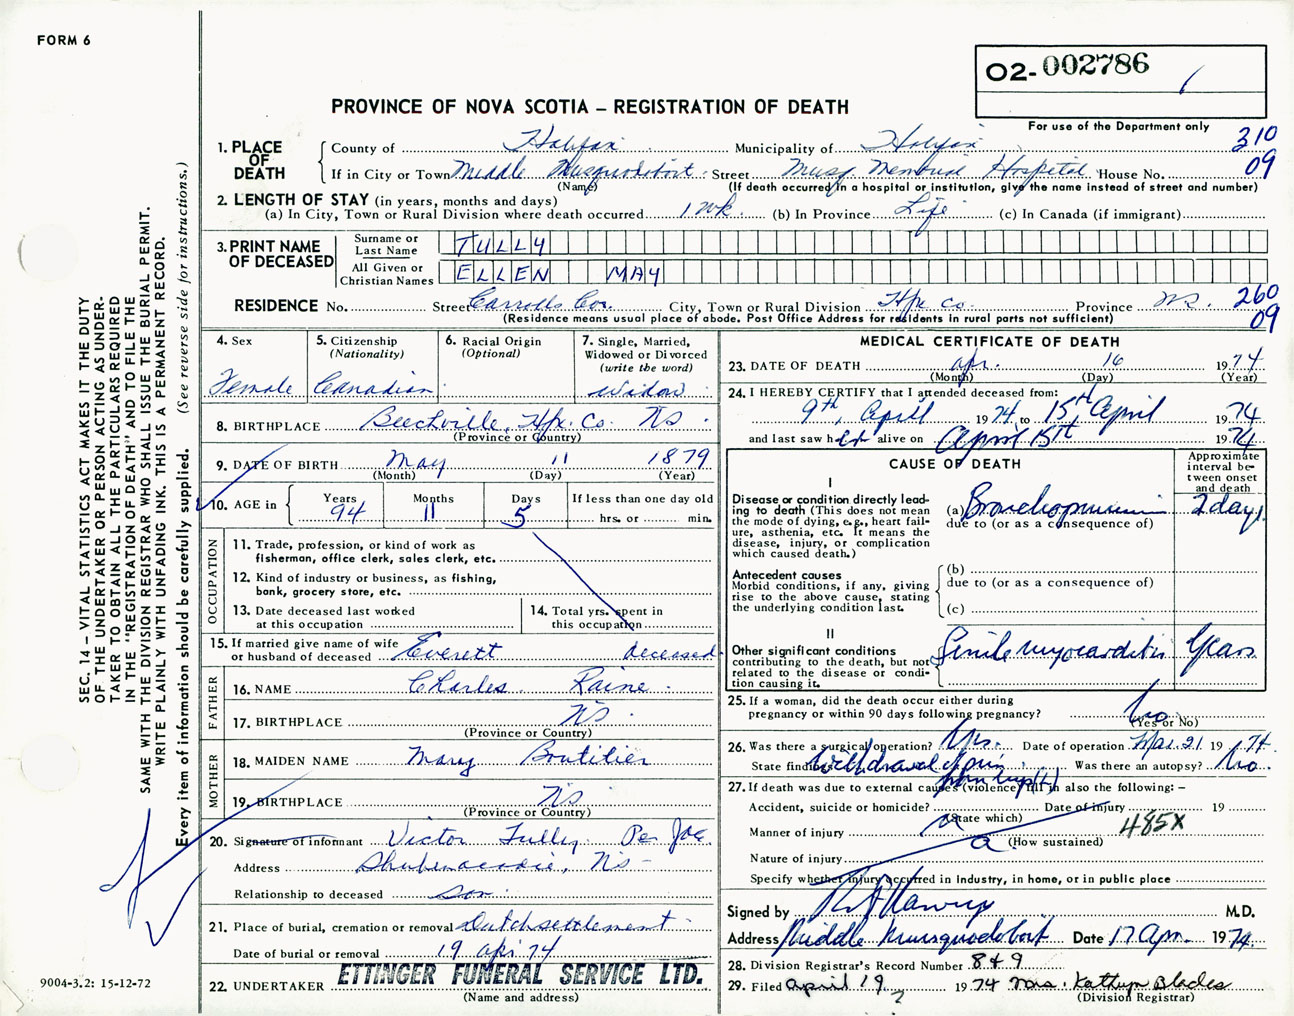 FORM 6
02-002786
PROVINCE OF NOVA SCOTIA – REGISTRATION OF DEATH
For use of the Department only
310
09
1. PLACE OF DEATH
County of Halifax Municipality of Halifax
If in City or Town Middle Musquodoboit Street Musq. Memorial Hospital House No.
(Name) (If death occurred in a hospital or institution, give the name instead of street and number)
2. LENGTH OF STAY (in years, months and days)
(a) In City, Town or Rural Division where death occurred 1 wk. (b) In Province Life (c) In Canada (if immigrant)
3. PRINT NAME OF DECEASED
Surname or Last Name TULLY
All Given or Christian Names ELLEN MAY
RESIDENCE No. Street Carrolls Cor. City, Town or Rural Division Hfx. Co. Province N.S. 260
09
(Residence means usual place of abode. Post Office Address for residents in rural parts not sufficient)
4. Sex
Female
5. Citizenship
(Nationality)
Canadian
6. Racial Origin
(Optional)
7. Single, Married,
Widowed or Divorced
(write the word)
Widow
8. BIRTHPLACE Beechville, Hfx. Co. N.S.
(Province or Country)
9. DATE OF BIRTH May 11 1879
(Month) (Day) (Year)
10. AGE in
Years 94
Months 11
Days 5
If less than one day old
hrs. or min.
OCCUPATION
11. Trade, profession, or kind of work as
fisherman, office clerk, sales clerk, etc.
12. Kind of industry or business, as fishing,
bank, grocery store, etc.
13. Date deceased last worked
at this occupation
14. Total yrs. spent in
this occupation
15. If married give name of wife
or husband of deceased Everett deceased
FATHER
16. NAME Charles Raine
17. BIRTHPLACE N.S.
(Province or Country)
MOTHER
18. MAIDEN NAME Mary Boutilier
19. BIRTHPLACE N.S.
(Province or Country)
20. Signature of informant Victor Tully Per Joe
Address Shubenacadie, N.S.
Relationship to deceased son
21. Place of burial, cremation or removal Dutch settlement
Date of burial or removal 19 Apr. 74
22. UNDERTAKER ETTINGER FUNERAL SERVICE LTD.
(Name and address)
MEDICAL CERTIFICATE OF DEATH
23. DATE OF DEATH Apr. 16 1974
(Month) (Day) (Year)
24. I HEREBY CERTIFY that I attended deceased from:
9th, April 1974 to 15, April 1974
and last saw her alive on April 15th 1974
CAUSE OF DEATH
Approximate
interval be-
tween onset
and death
I
Disease or condition directly lead-
ing to death (This does not mean
the mode of dying, e.g., heart fail-
ure, asthenia, etc. It means the
disease, injury, or complication
which caused death.)
(a) Bronchopneumonia 2 days.
due to (or as a consequence of)
Antecedent causes
Morbid conditions, if any, giving
rise to the above cause, stating
the underlying condition last.
(b)
due to (or as a consequence of)
(c)
II
Other significant conditions
contributing to the death, but not
related to the disease or condi-
tion causing it.
Senile myocarditis Years
25. If a woman, did the death occur either during
pregnancy or within 90 days following pregnancy? No
(Yes or No)
26. Was there a surgical operation? Yes. Date of operation Mar. 21 1974.
State findings Withdrawal of pin from hip (L) Was there an autopsy? No
27. If death was due to external causes (violence) fill in also the following: –
Accident, suicide or homicide? Date of injury 19
(State which)
Manner of injury 485X
(How sustained)
Nature of injury
Specify whether injury occurred in Industry, in home, or in public place
Signed by M.D.
Address Middle Musquodoboit Date 17 Apr. 1974.
28. Division Registrar's Record Number 849
29. Filed April 19 1974 Mrs. Kathryn Blades
(Division Registrar)
SEC. 14 – VITAL STATISTICS ACT MAKES IT THE DUTY
OF THE UNDERTAKER OR PERSON ACTING AS UNDER-
TAKER TO OBTAIN ALL THE PARTICULARS REQUIRED
IN THE "REGISTRATION OF DEATH" AND TO FILE THE
SAME WITH THE DIVISION REGISTRAR WHO SHALL ISSUE THE BURIAL PERMIT.
WRITE PLAINLY WITH UNFADING INK. THIS IS A PERMANENT RECORD.
Every item of information should be carefully supplied. (See reverse side for instructions.)
9004-3.2: 15-12-72